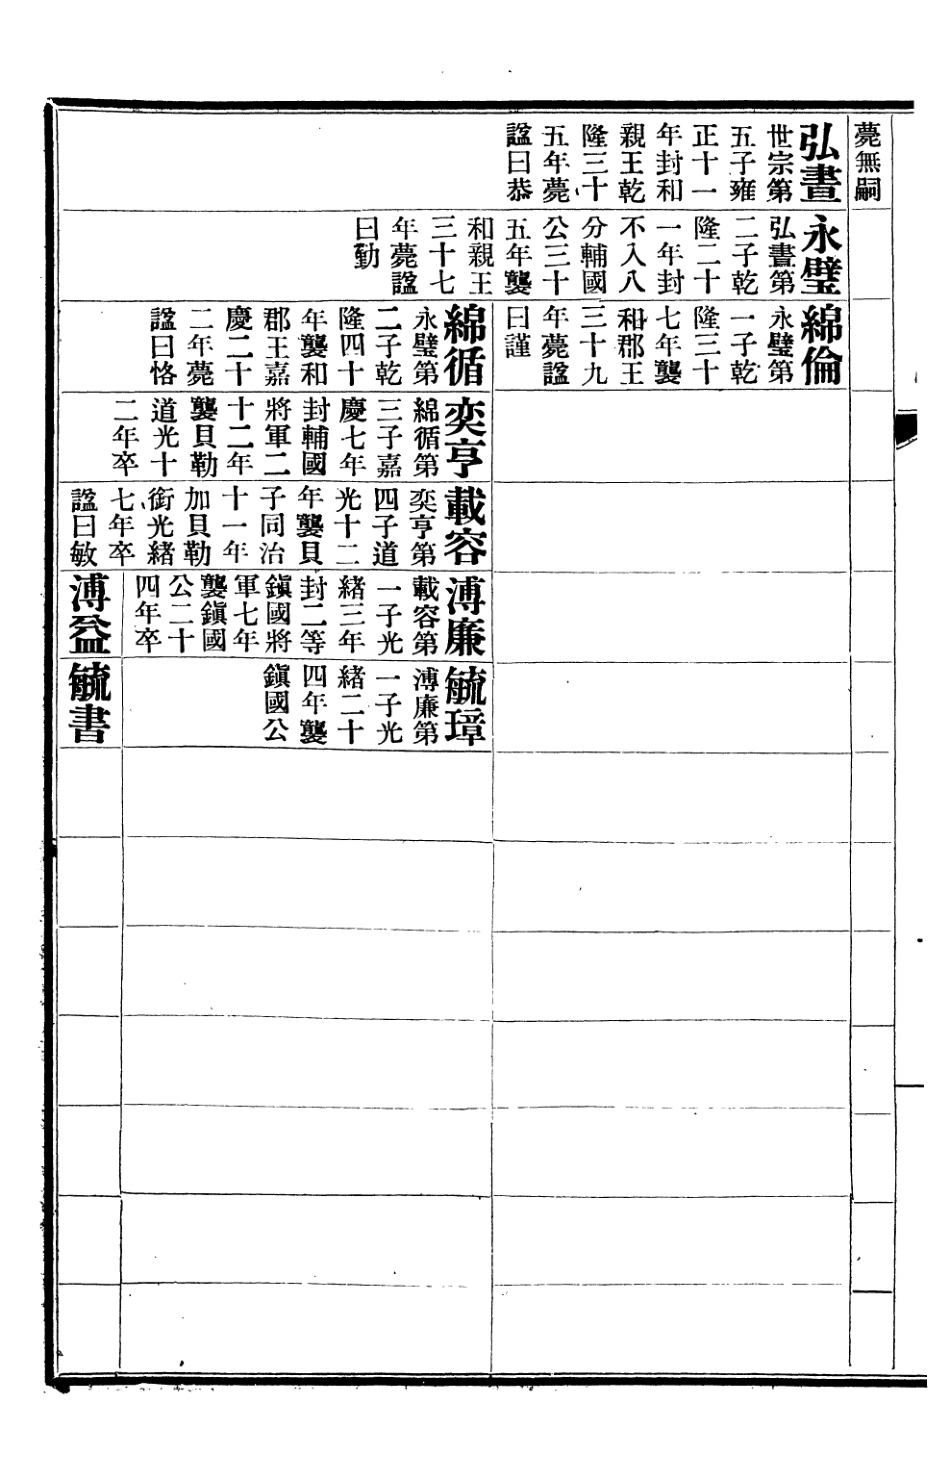 薨無嗣
弘晝
世宗第
五子雍
正十一
年封和
親王乾
隆三十
五年薨
諡曰恭
永璧
弘晝第
二子乾
隆二十
一年封
不入八
分輔國
公三十
五年襲
和親王
三十七
年薨諡
曰勤
綿倫
永璧第
一子乾
隆三十
七年襲
和郡王
三十九
年薨諡
曰謹
綿循
永璧第
二子乾
隆四十
年襲和
郡王嘉
慶二十
二年薨
諡曰恪
奕亨
綿循第
三子嘉
慶七年
封輔國
將軍二
十二年
襲貝勒
道光十
二年卒
載容
奕亨第
四子道
光十二
年襲貝
子同治
十一年
加貝勒
銜光緒
七年卒
諡曰敏
溥廉
載容第
一子光
緒三年
封二等
鎭國將
軍七年
襲鎭國
公二十
四年卒
毓璋
溥廉第
一子光
緒二十
四年襲
鎭國公
溥益
毓書